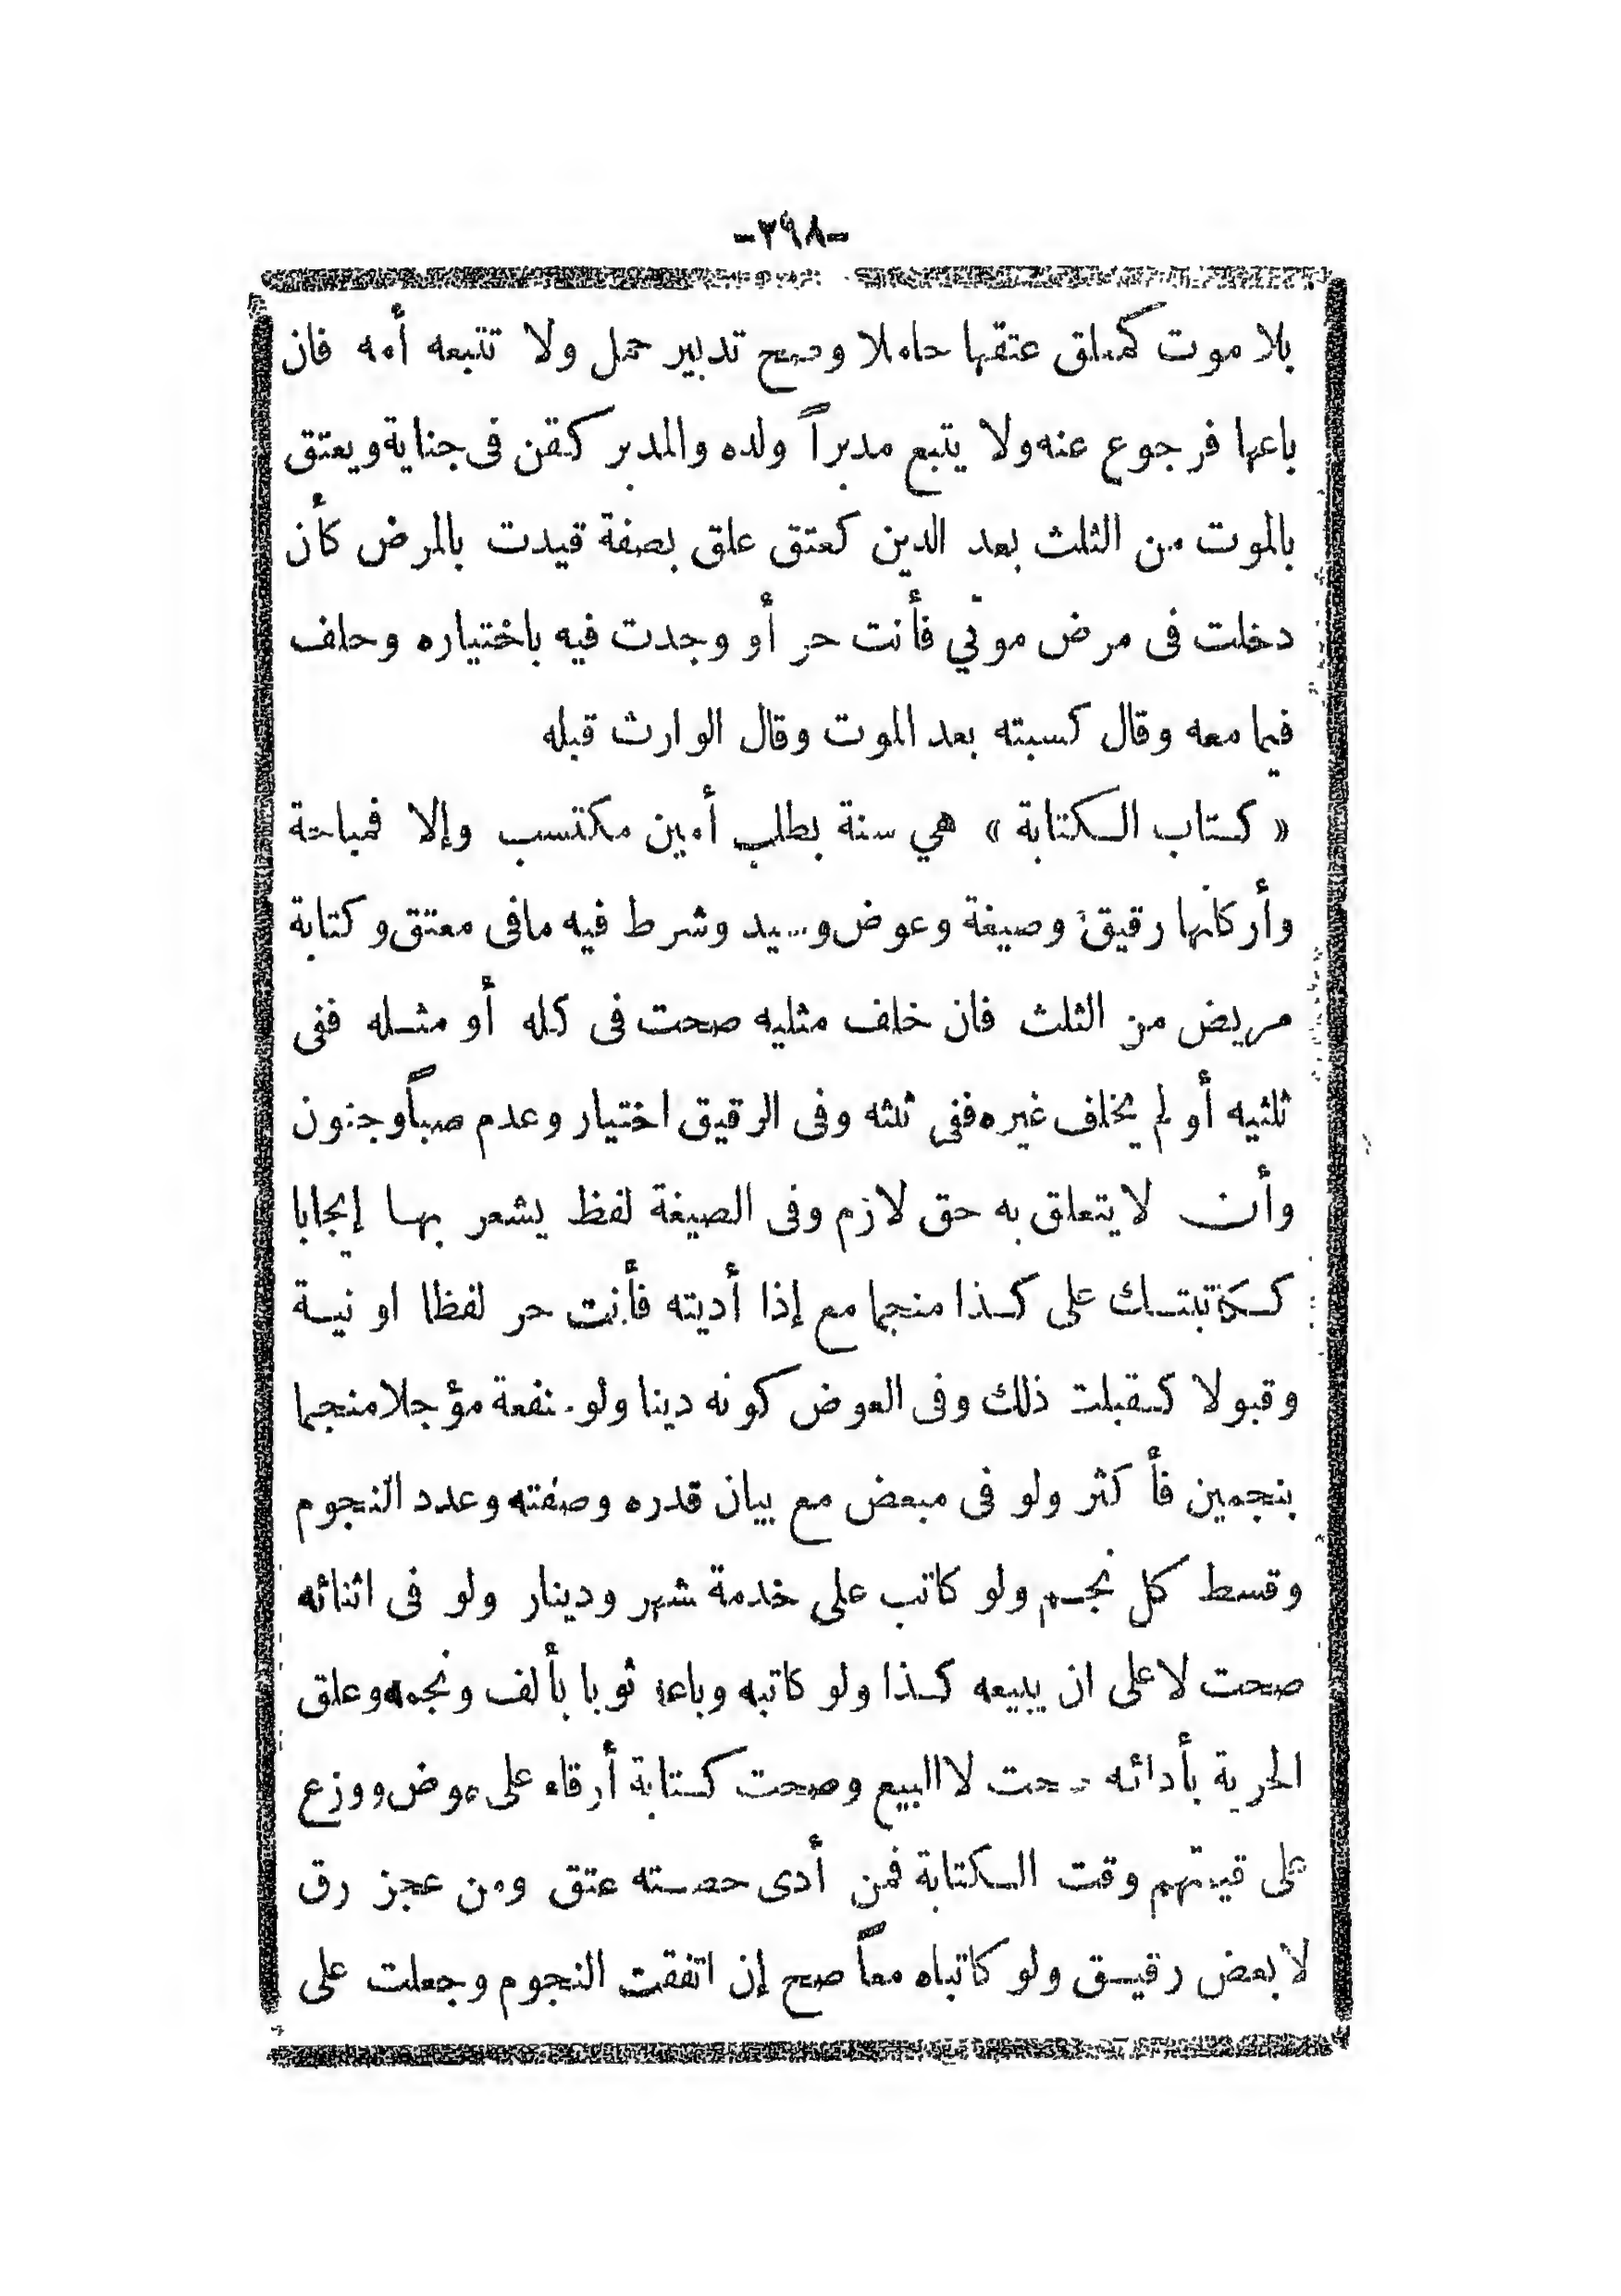 -٣٩٨-
بلا موت كمعلق عتقها حاملا وصح تدبير حمل ولا تتبعه أمه فان
باعها فرجوع عنه ولا يتبع مدبراً ولده والمدبر كقن فى جناية ويعتق
بالموت من الثلث بعد الدين كعتق علق بصفة قيدت بالمرض كأن
دخلت فى مرض موتي فأنت حر أو وجدت فيه باختياره وحلف
فيما معه وقال كسبته بعد الموت وقال الوارث قبله
« كتاب الكتابة » هي سنة بطلب أمين مكتسب وإلا فمباحة
وأركانها رقيق وصيغة وعوض وسيد وشرط فيه مافى معتق وكتابة
مريض من الثلث فان خلف مثليه صحت فى كله أو مثله ففى
ثلثيه أو لم يخلف غيره ففى ثلثه وفى الرقيق اختيار وعدم صباً وجنون
وأن لا يتعلق به حق لازم وفى الصيغة لفظ يشعر بها إيجابا
ككاتبتك على كذا منجما مع إذا أديته فأنت حر لفظا او نية
وقبولا كقبلت ذلك وفى العوض كونه دينا ولو منفعة مؤجلا منجما
بنجمين فأكثر ولو فى مبعض مع بيان قدره وصفته وعدد النجوم
وقسط كل نجم ولو كاتب على خدمة شهر ودينار ولو فى اثنائه
صحت لا على ان يبيعه كذا ولو كاتبه وباعه ثوبا بألف ونجمه وعلق
الحرية بأدائه صحت لا البيع وصحت كتابة أرقاء على عوض ووزع
على قيمتهم وقت الكتابة فمن أدى حصته عتق ومن عجز رق
لا بعض رقيق ولو كاتباه معاً صح إن اتفقت النجوم وجعلت على